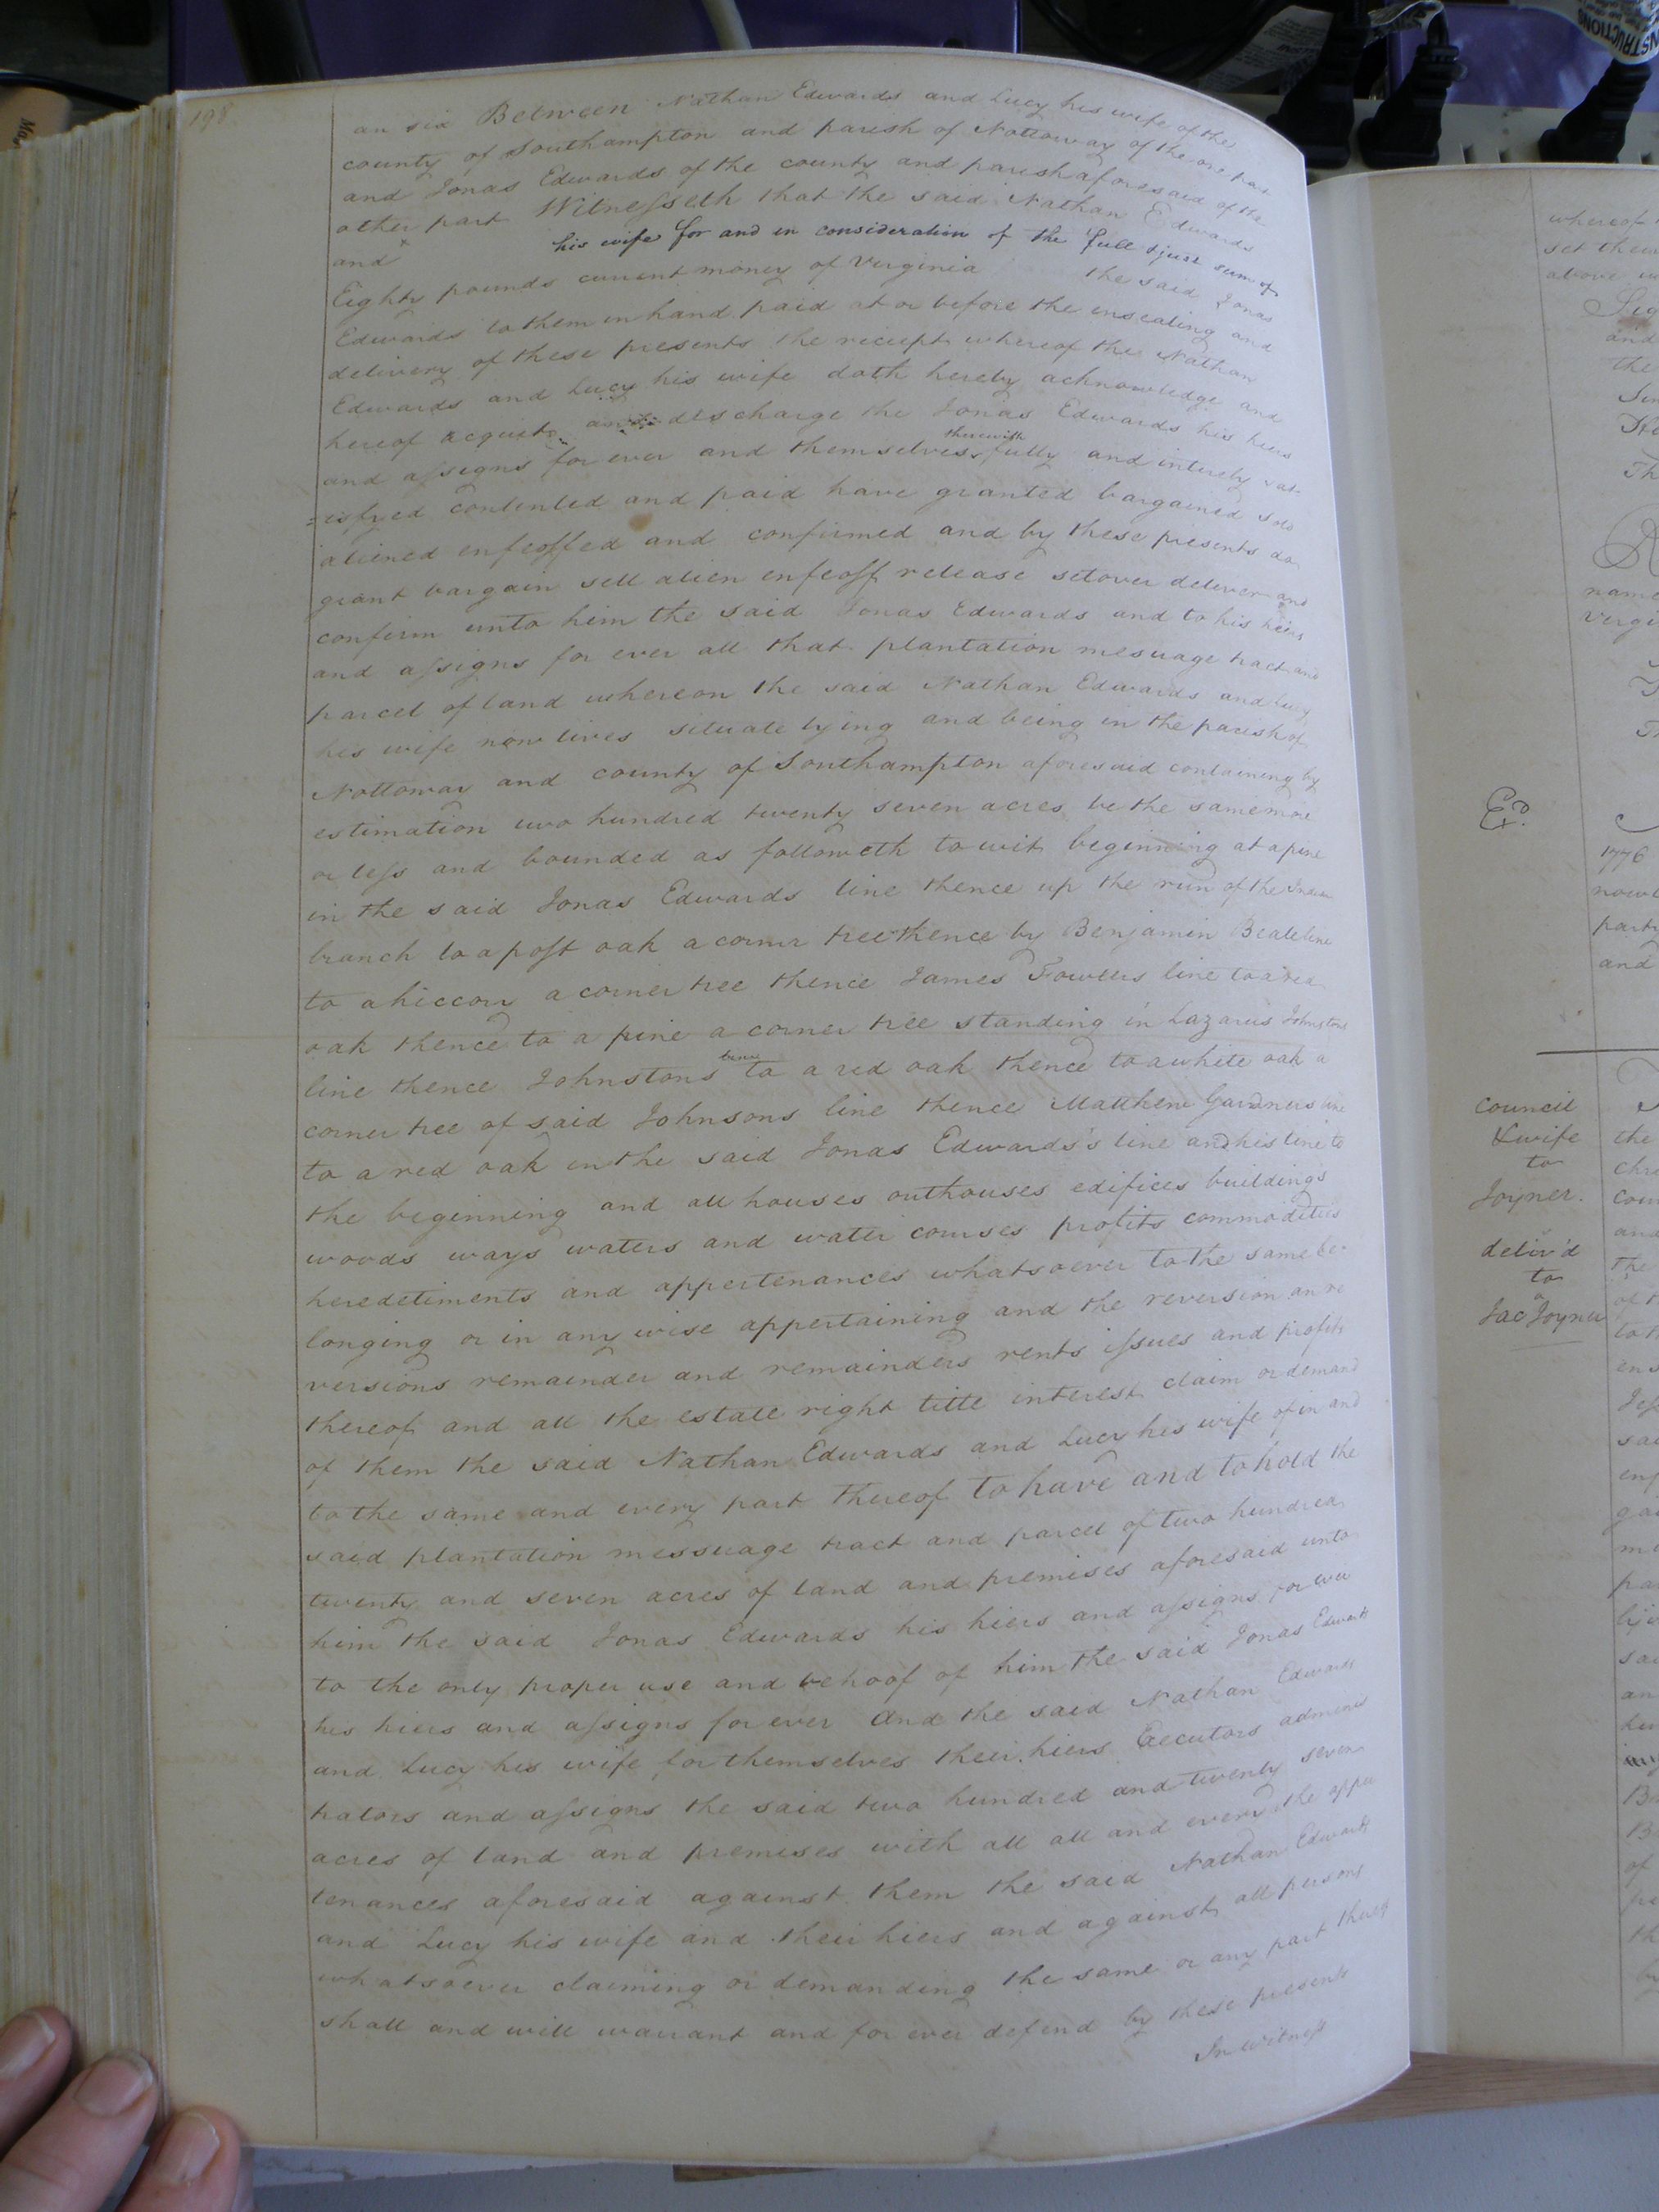 198
an six Between Nathan Edwards and Lucy his wife of the
county of Southampton and parish of Nottoway of the one part
and Jonas Edwards of the county and parish aforesaid of the
other part Witnesseth that the said Nathan Edwards
and his wife for and in consideration of the full & just sum of
Eighty pounds current money of Virginia the said Jonas
Edwards to them in hand paid at or before the ensealing and
delivery of these presents the reciept whereof the Nathan
Edwards and Lucy his wife doth hereby acknowledge and
hereof acquit and discharge the Jonas Edwards his hiers
and assigns for ever and themselves therewith fully and intirely sat-
=isfyed contented and paid have granted bargained sold
aliened enfeoffed and confirmed and by these presents do
grant bargain sell alien enfeoff release setover deliver and
confirm unto him the said Jonas Edwards and to his heirs
and assigns for ever all that plantation mesuage tract and
parcel of land whereon the said Nathan Edwards and Lucy
his wife now lives situate lying and being in the parish of
Nottoway and county of Southampton aforesaid containing by
estimation two hundred twenty seven acres be the same more
or less and bounded as followeth to wit beginning at a pine
in the said Jonas Edwards line thence up the run of the Indian
branch to a post oak a corner tree thence by Benjamin Beale line
to a hiccory a corner tree thence James Fowlers line to a red
oak thence to a pine a corner tree standing in Lazarus Johnstons
line thence Johnstons line to a red oak thence to a white oak a
corner tree of said Johnsons line thence Matthew Gardners line
to a red oak in the said Jonas Edwards's line and his line to
the beginning and all houses outhouses edifices buildings
woods ways waters and water courses profits commodities
heredetiments and appertenances whatsoever to the same be-
longing or in any wise appertaining and the reversion an re
versions remainder and remainders rents issues and profits
thereof and all the estate right title interest claim or demand
of them the said Nathan Edwards and Lucy his wife of in and
to the same and every part thereof to have and to hold the
said plantation messuage tract and parcel of two hundred
twenty and seven acres of land and premises aforesaid unto
him the said Jonas Edwards his hiers and assigns for ever
to the only proper use and behoof of him the said Jonas Edwards
his hiers and assigns for ever And the said Nathan Edwards
and Lucy his wife for themselves their hiers Executors adminis
trators and assigns the said two hundred and twenty seven
acres of land and premises with all all and every the appu
tenances aforesaid against them the said Nathan Edwards
and Lucy his wife and their hiers and against all persons
whatsoever claiming or demanding the same or any part thereof
shall and will warrant and for ever defend by these presents
In witness
whereof
set their
above
and
the
name
Virgi
Ex.d
1776
part
and
Council
& wife
to
Joyner.
deliv'd
to
Jac Joyner
the